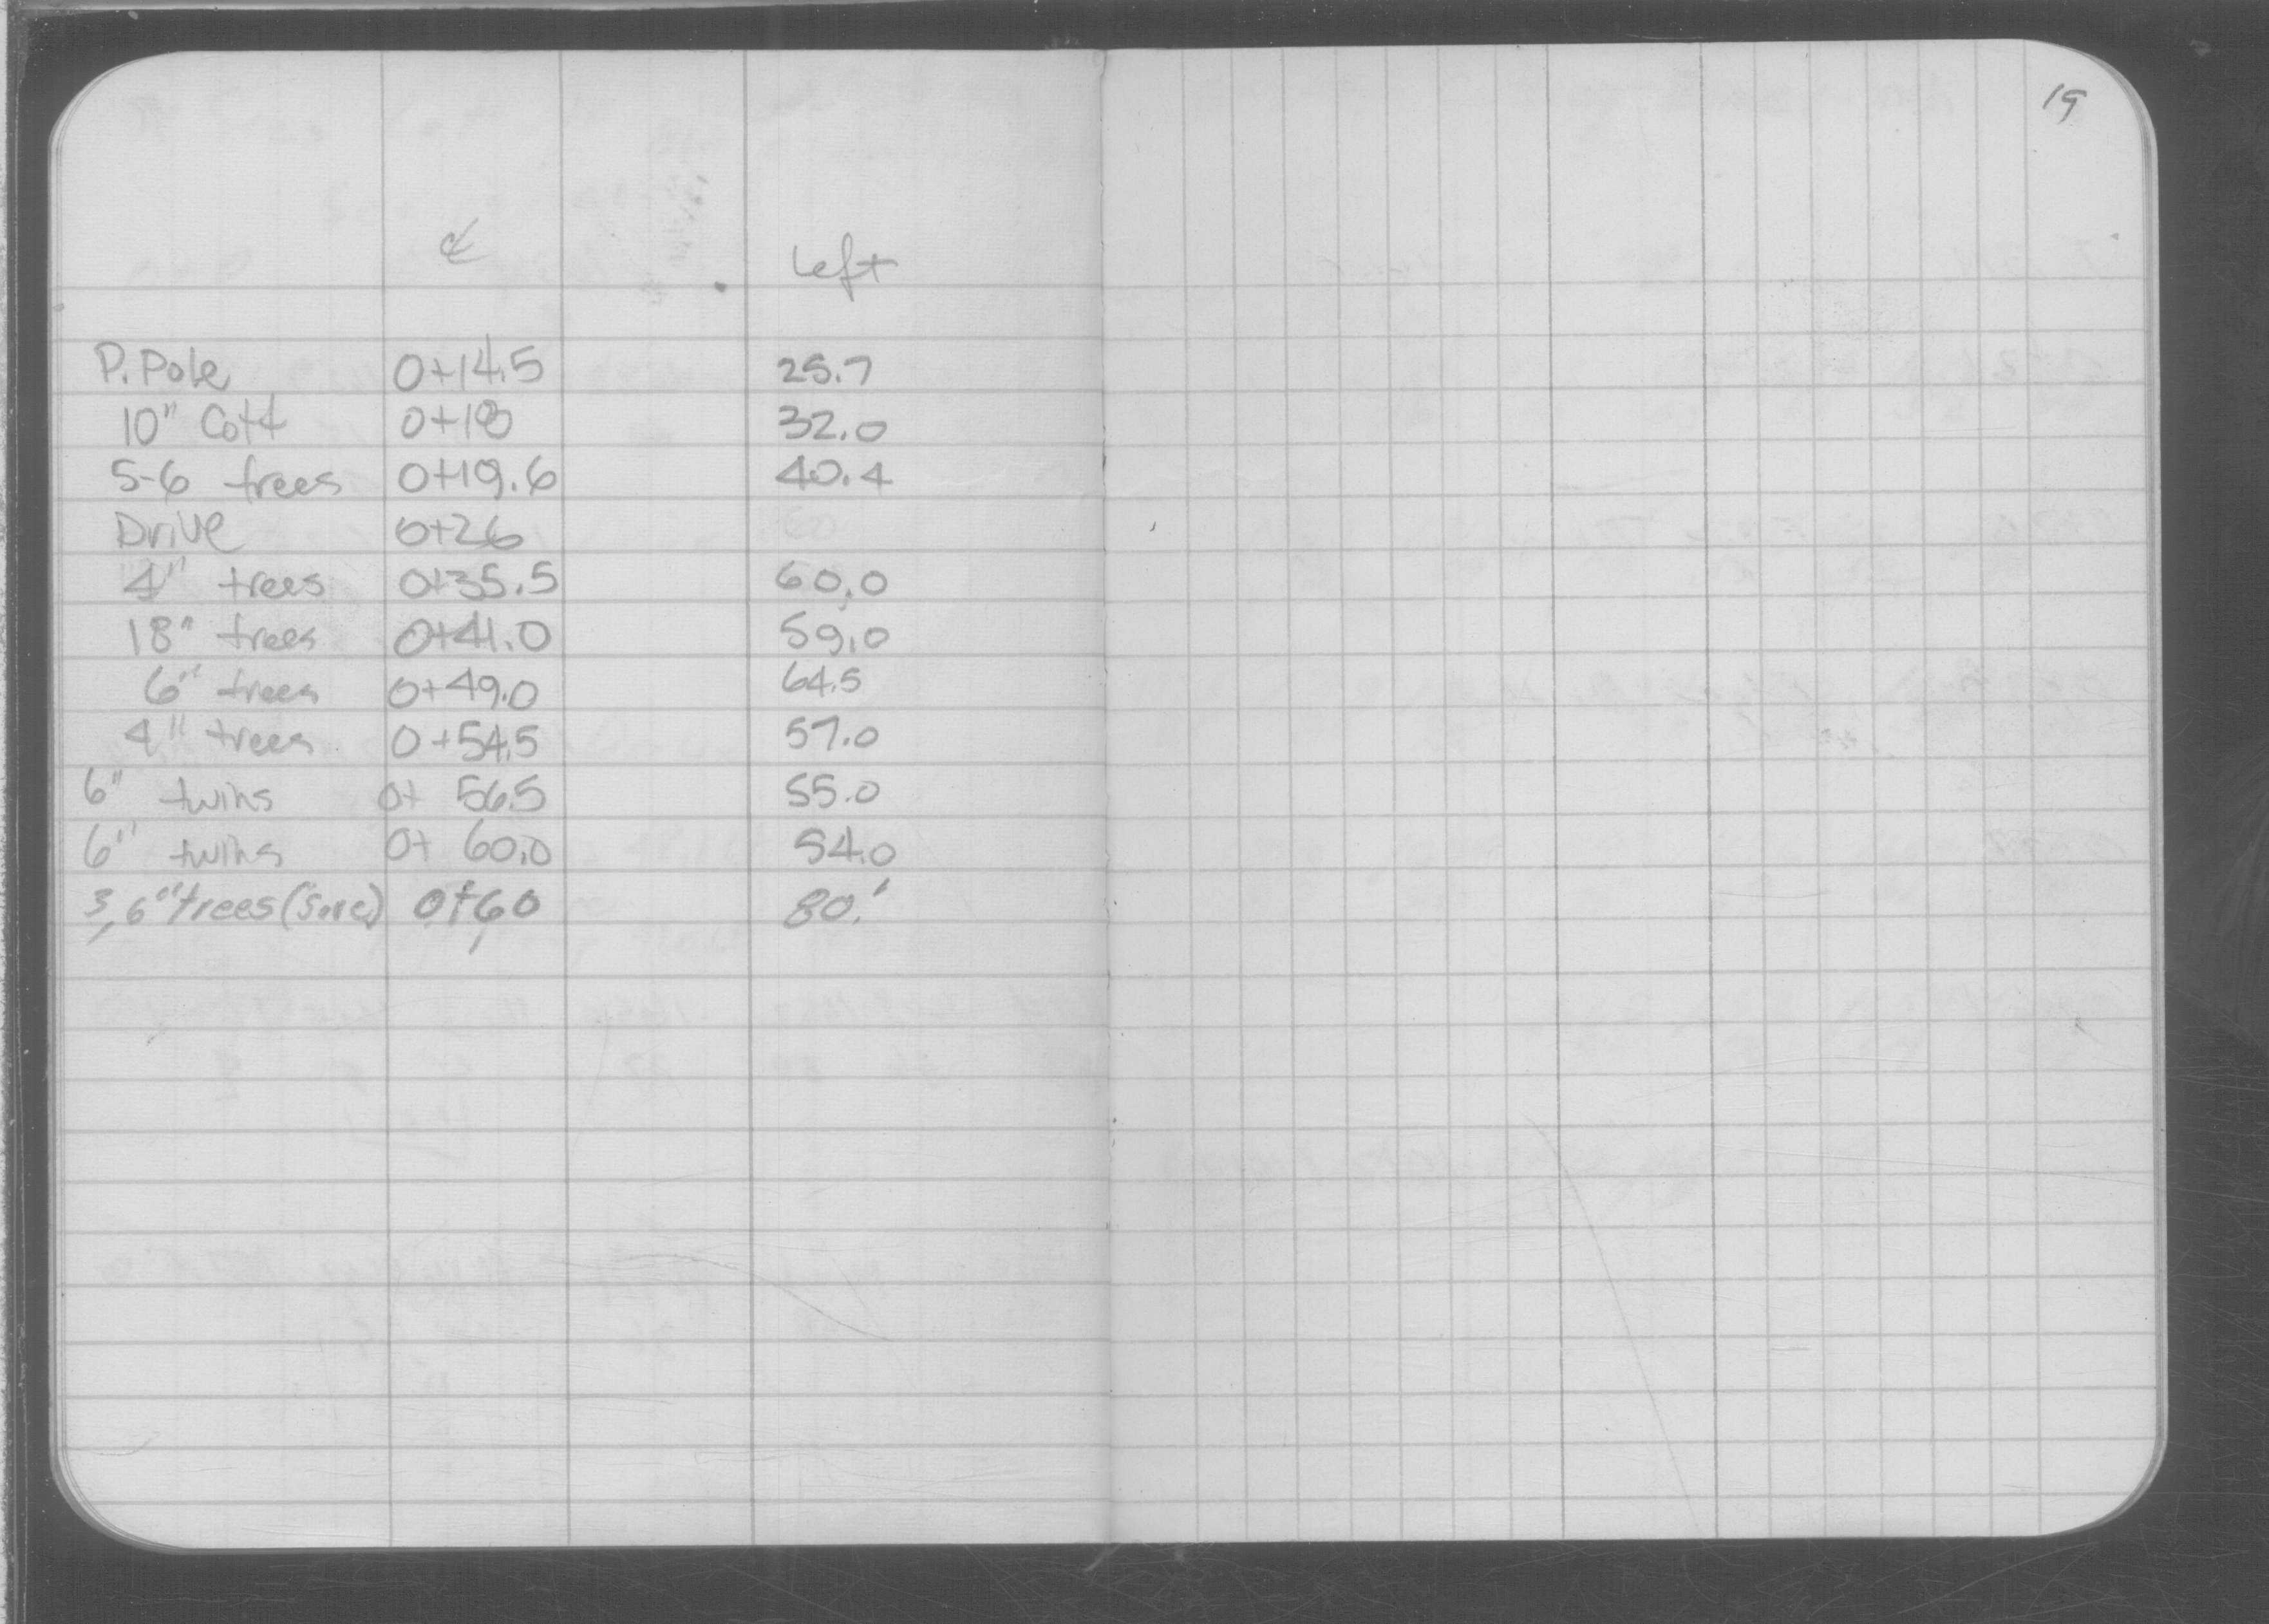 19
℄ Left
P. Pole 0+14.5 25.7
10" Cott 0+18 32.0
5-6 trees 0+19.6 40.4
Drive 0+26
4" trees 0+35.5 60.0
18" trees 0+41.0 59.0
6" trees 0+49.0 64.5
4" trees 0+54.5 57.0
6" twins 0+ 56.5 55.0
6" twins 0+ 60.0 54.0
3, 6" trees (Save) 0+60 80.'